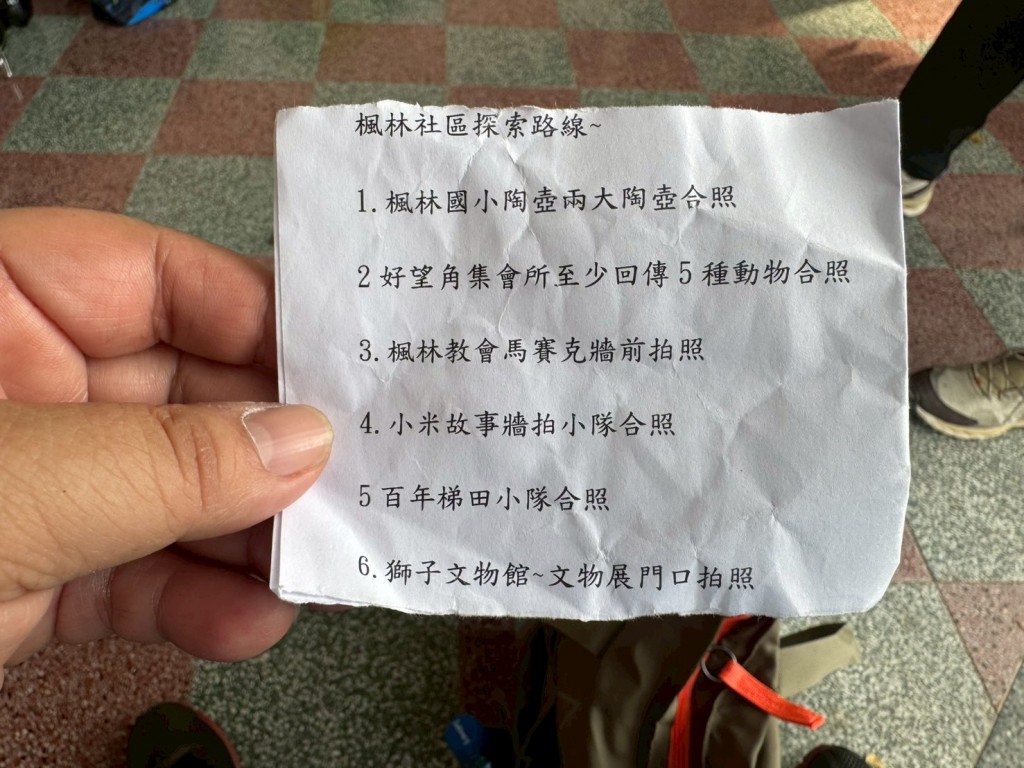 楓林社區探索路線~
1. 楓林國小陶壺兩大陶壺合照
2 好望角集會所至少回傳 5 種動物合照
3. 楓林教會馬賽克牆前拍照
4. 小米故事牆拍小隊合照
5 百年梯田小隊合照
6. 獅子文物館~文物展門口拍照